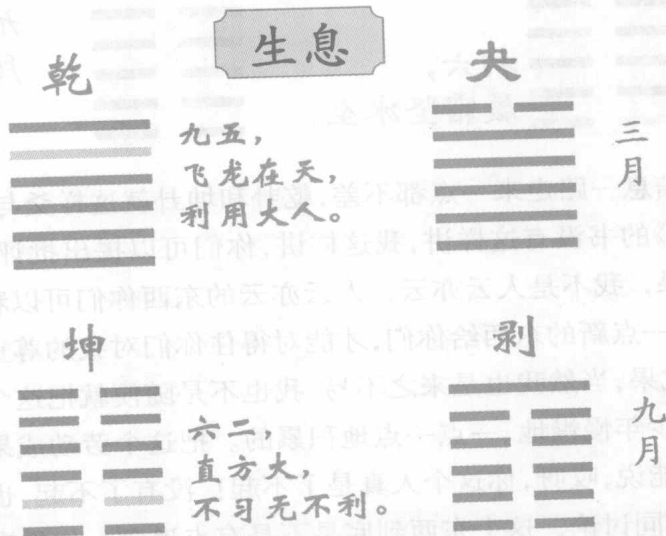 生息
乾
九五，
飞龙在天，
利用大人。
夬
三月
坤
六二，
直方大，
不习无不利。
剥
九月